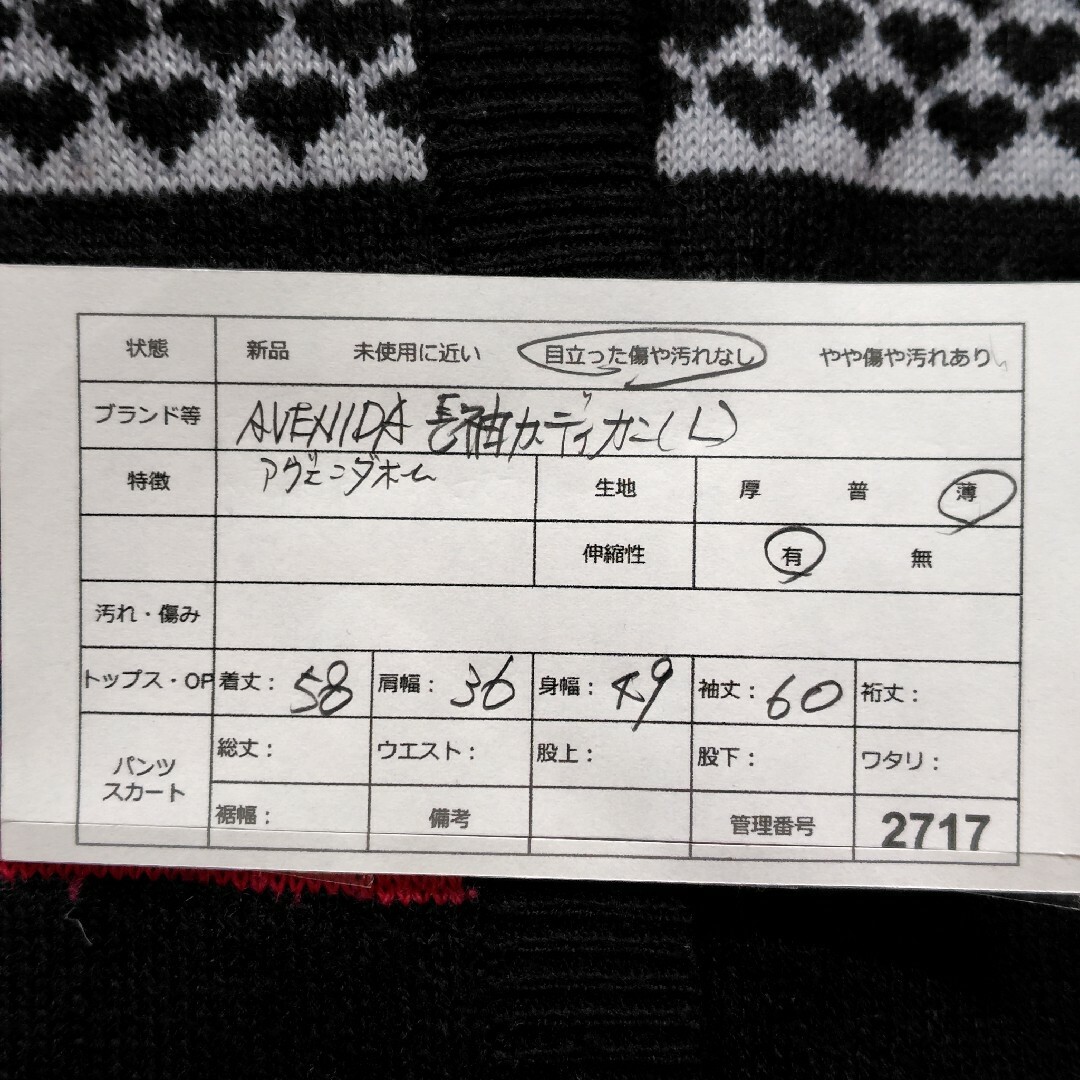 状態 新品 未使用に近い 目立った傷や汚れなし やや傷や汚れあり
ブランド等 AVENIDA 長袖カーディガン(L)
特徴 アヴェニダホーム 生地 厚 普 薄
伸縮性 有 無
汚れ・傷み
トップス・OP 着丈: 58 肩幅: 36 身幅: 49 袖丈: 60 裄丈:
パンツ スカート 総丈: ウエスト: 股上: 股下: ワタリ:
裾幅: 備考 管理番号 2717